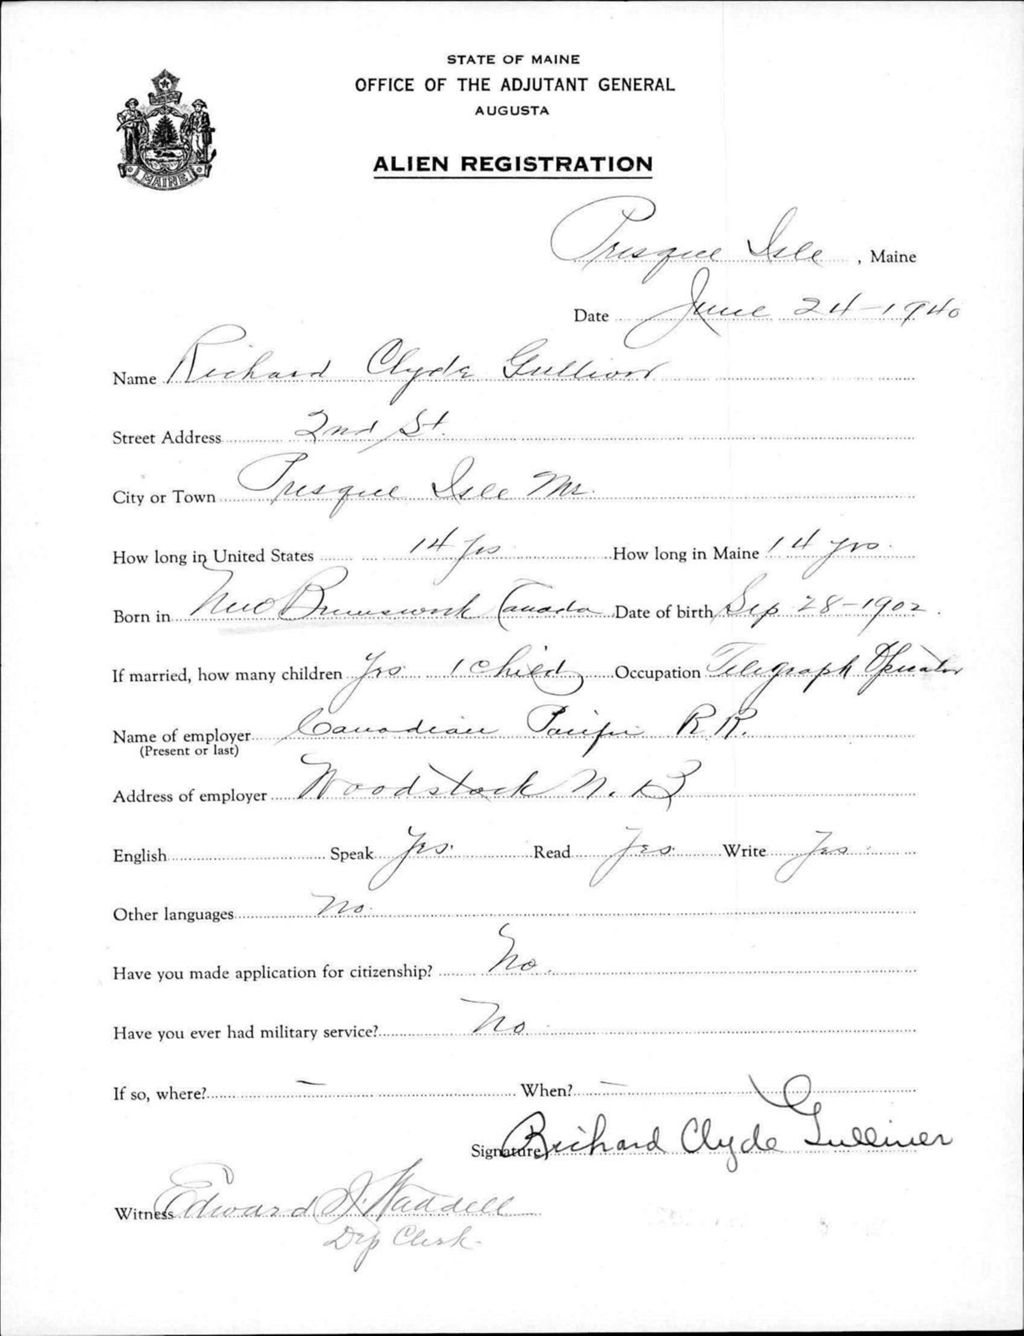 STATE OF MAINE
OFFICE OF THE ADJUTANT GENERAL
AUGUSTA
MAINE
ALIEN REGISTRATION
Presque Isle, Maine
Date June 24-1940
Name Richard Clyde Gulliver
Street Address 2nd St.
City or Town Presque Isle Me.
How long in United States 14 yrs How long in Maine 14 yrs.
Born in New Brunswick Canada Date of birth Sep 28-1902.
If married, how many children Yes 1 child Occupation Telegraph Operator
Name of employer Canadian Pacific R.R.
(Present or last)
Address of employer Woodstock N.B
English Speak Yes. Read Yes. Write Yes.
Other languages No.
Have you made application for citizenship? No.
Have you ever had military service? No
If so, where? — When? —
Signature Richard Clyde Gulliver
Witness Edward J. Waddell
Dep Clerk-